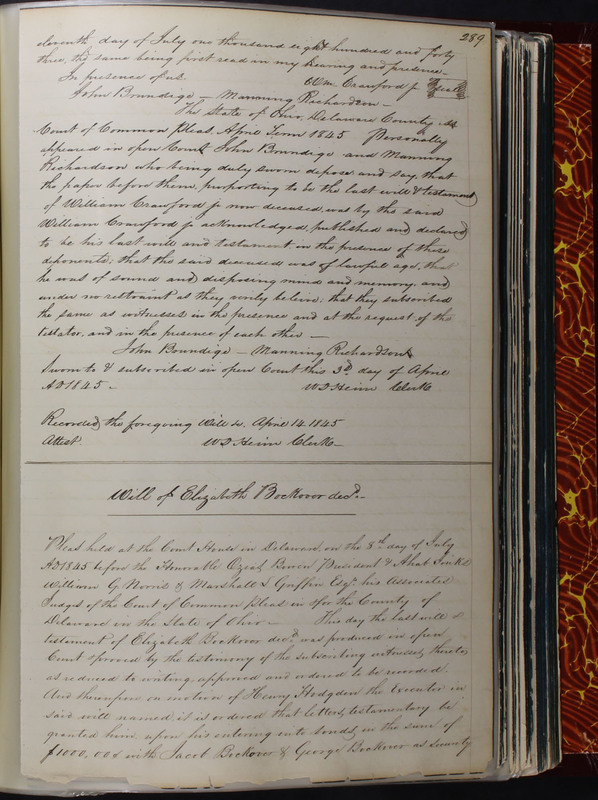 289
eleventh day of July one thousand eight hundred and forty
three, the same being first read in my hearing and presence
In presence of us. Wm. Crawford jr Seal
John Brundige — Manning Richardson —
The State of Ohio, Delaware County ss.
Court of Common Pleas, April Term 1845 Personally
appeared in open Court John Brundige and Manning
Richardson who being duly sworn depose and say, that
the paper before them, purporting to be the last will & testament
of William Crawford jr now deceased, was by the said
William Crawford jr acknowledged, published and declared
to be his last will and testament, in the presence of these
deponents; that the said deceased was of lawful age, that
he was of sound and disposing mind and memory, and
under no restraint as they verily believe, that they subscribed
the same as witnesses in the presence and at the request of the
testator, and in the presence of each other —
John Brundige — Manning Richardson
Sworn to & subscribed in open Court this 3d. day of April
AD 1845 — W D Heim Clerk
Recorded the foregoing Will &c. April 14. 1845
Attest. W D Heim Clerk —
Will of Elizabeth Bockover decd. —
Pleas held at the Court House in Delaware, on the 8th day of July
AD 1845 before the Honorable Ozias Bowen President & Ahab Jinks
William G. Norris & Marshall L Griffin Esqrs his Associate
Judges of the Court of Common Pleas in & for the County of
Delaware in the State of Ohio — This day the last will &
testament of Elizabeth Bockover decd. was produced in open
Court & proved by the testimony of the subscribing witnesses thereto,
as reduced to writing, approved and ordered to be recorded.
And thereupon on motion of Henry Hodgden the Executor in
said will named, it is ordered that letters testamentary be
granted him upon his entering into bonds, in the sum of
$1000,00 with Jacob Bockover & George Bockover as Security